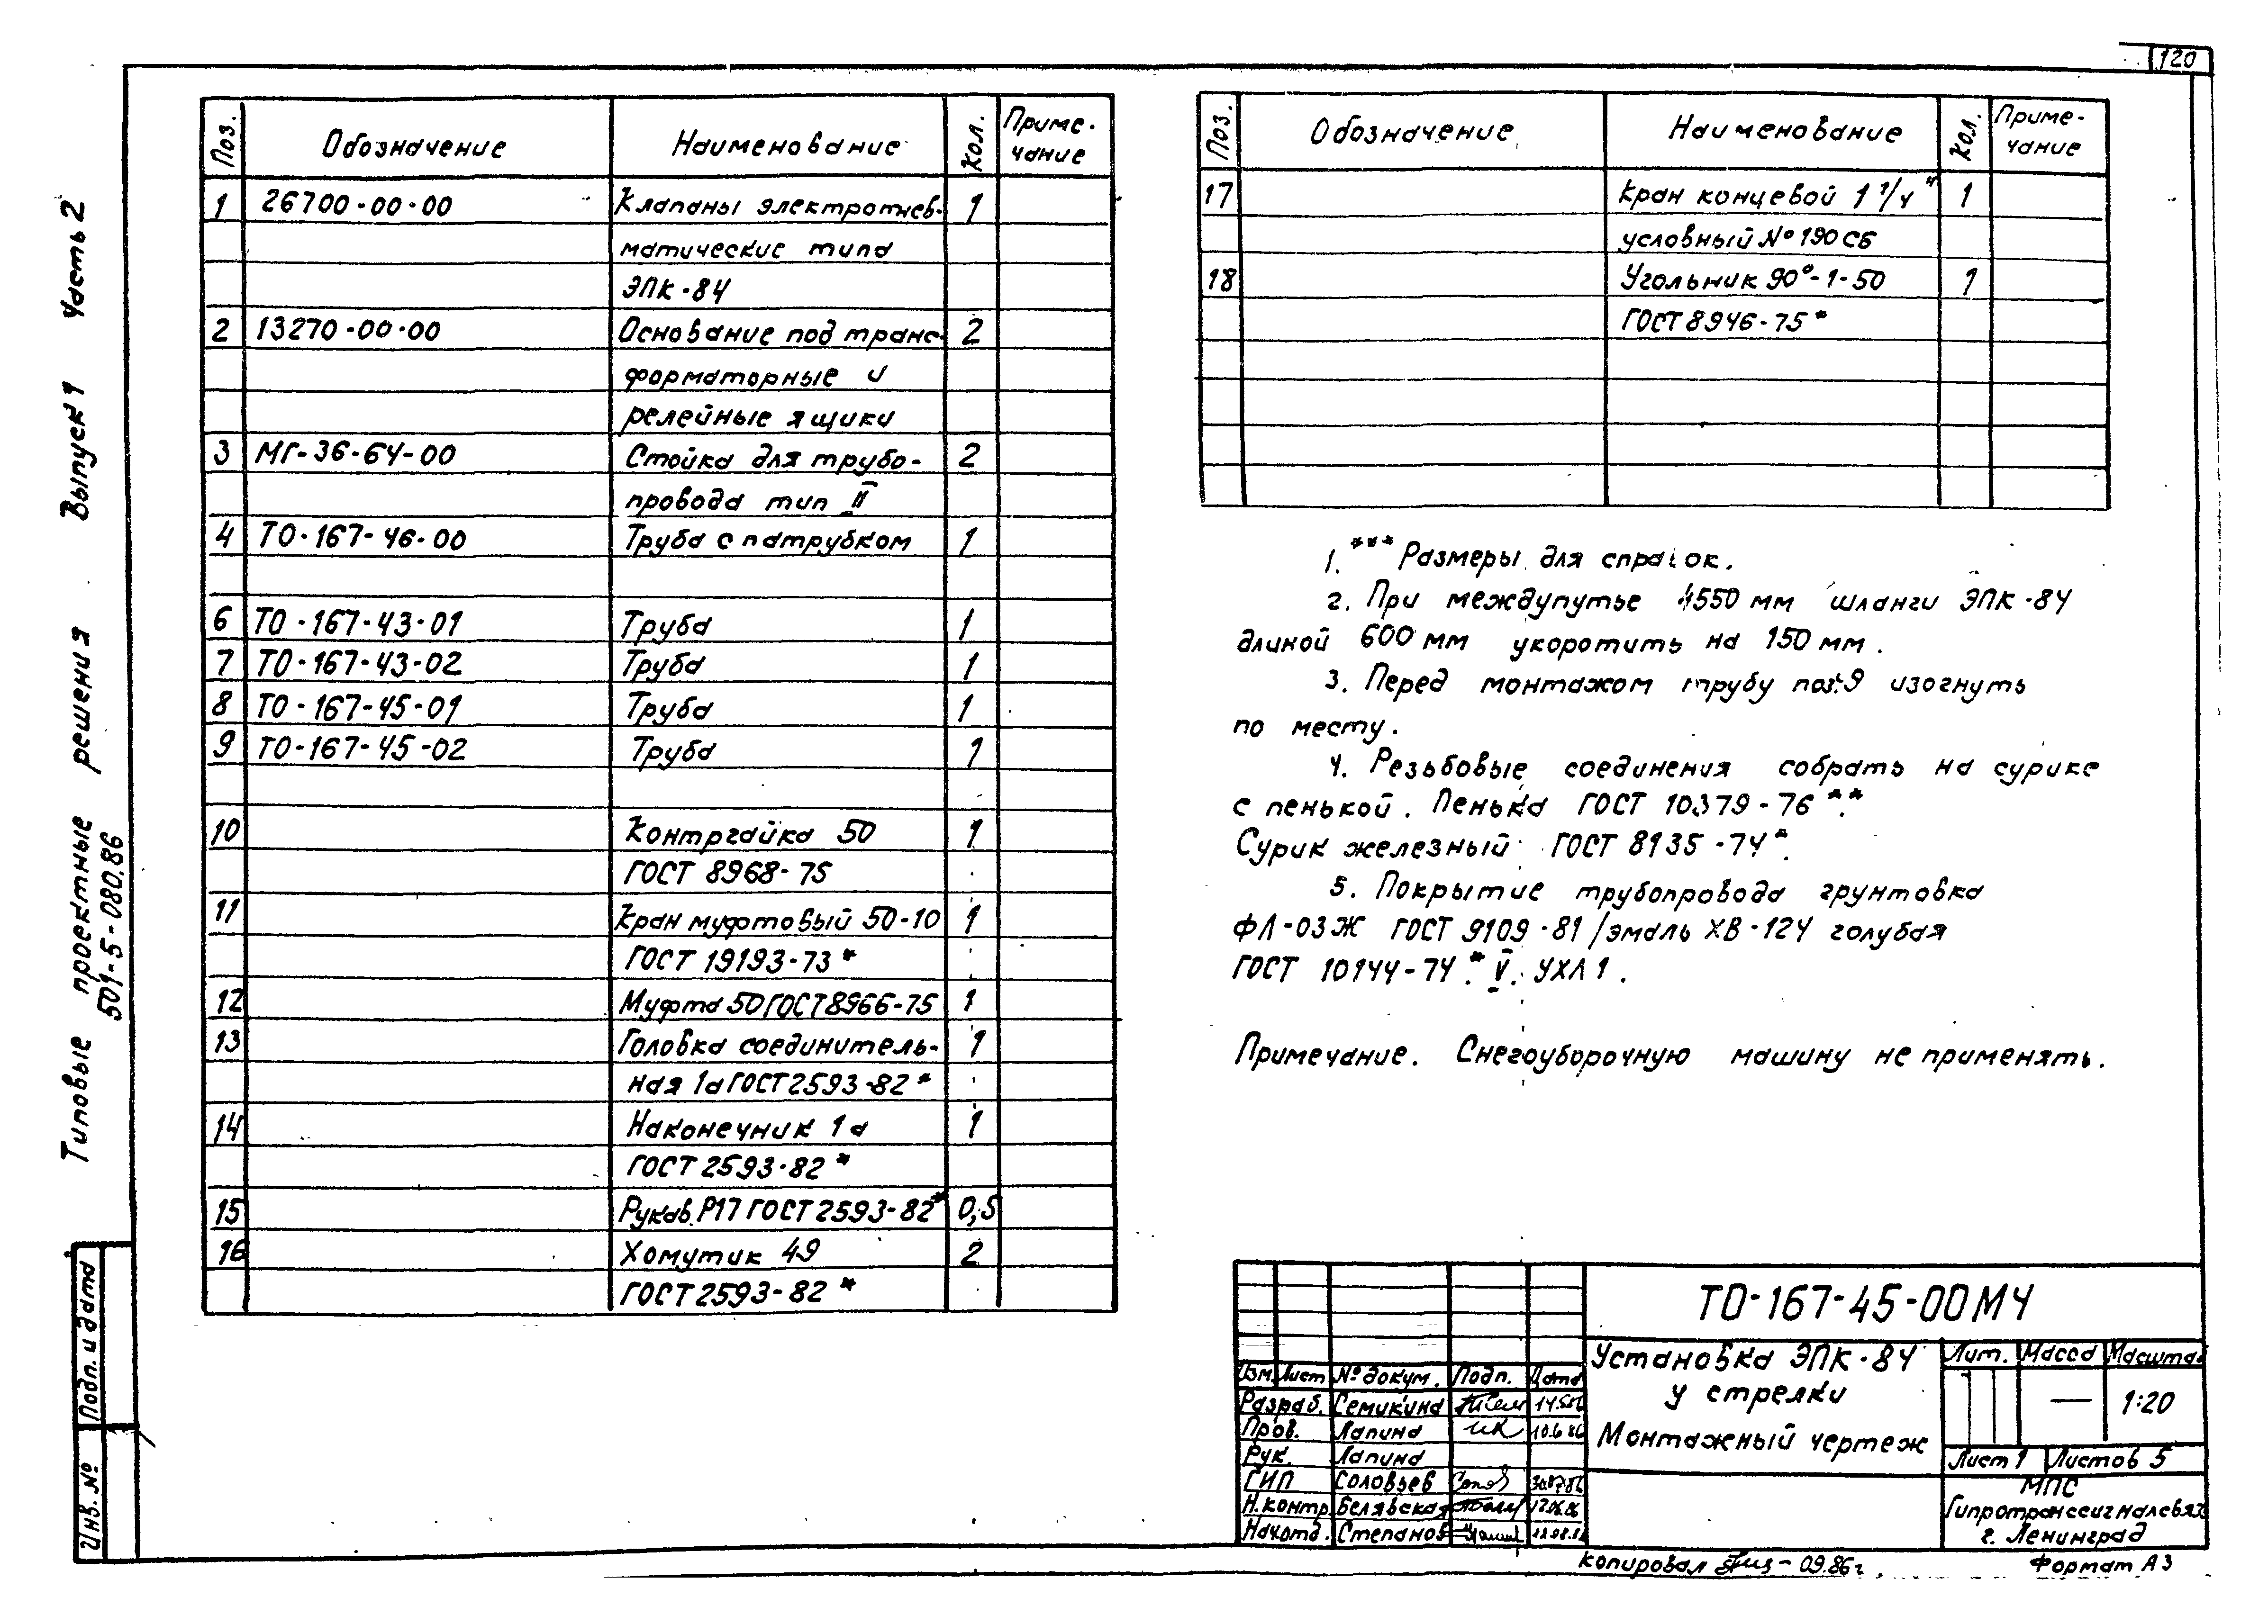 120
Типовые проектные решения Выпуск 1 Часть 2
501-5-080.86
Поз. Обозначение Наименование Кол. Приме-
чание
1 26700-00-00 Клапаны электропнев- 1
матические типа
ЭПК-84
2 13270-00-00 Основание под транс- 2
форматорные и
релейные ящики
3 МГ-36-64-00 Стойка для трубо- 2
провода тип II
4 ТО-167-46-00 Труба с патрубком 1
6 ТО-167-43-01 Труба 1
7 ТО-167-43-02 Труба 1
8 ТО-167-45-01 Труба 1
9 ТО-167-45-02 Труба 1
10 Контргайка 50 1
ГОСТ 8968-75
11 Кран муфтовый 50-10 1
ГОСТ 19193-73*
12 Муфта 50 ГОСТ 8966-75 1
13 Головка соединитель- 1
ная 1а ГОСТ 2593-82*
14 Наконечник 1а 1
ГОСТ 2593-82*
15 Рукав Р17 ГОСТ 2593-82* 0,5
16 Хомутик 49 2
ГОСТ 2593-82*
Поз. Обозначение Наименование Кол. Приме-
чание
17 Кран концевой 1 1/4" 1
условный № 190 СБ
18 Угольник 90°-1-50 1
ГОСТ 8946-75*
1. *** Размеры для справок.
2. При междупутье 4550 мм шланги ЭПК-84
длиной 600 мм укоротить на 150 мм.
3. Перед монтажом трубу поз.9 изогнуть
по месту.
4. Резьбовые соединения собрать на сурике
с пенькой. Пенька ГОСТ 10379-76**.
Сурик железный ГОСТ 8135-74*.
5. Покрытие трубопровода грунтовка
ФЛ-03Ж ГОСТ 9109-81/эмаль ХВ-124 голубая
ГОСТ 10144-74*. V. УХЛ1.
Примечание. Снегоуборочную машину не применять.
ТО-167-45-00МЧ
Изм. Лист № докум. Подп. Дата
Разраб. Семикина
Пров. Лапина 10.6.86
Рук. Лапина
ГИП Соловьев
Н.контр. Белявская 17.06.86
Нач.отд. Степанов
Установка ЭПК-84
у стрелки
Монтажный чертеж
Лит. Масса Масштаб
— 1:20
Лист 1 Листов 5
МПС
Гипротранссигналсвязь
г. Ленинград
Подп. и дата
Инв. №
Копировал 09.86г. Формат А3